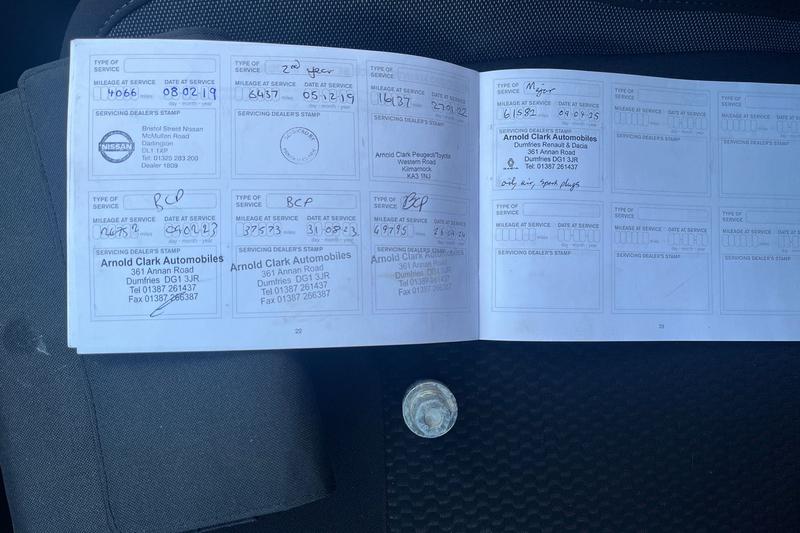 TYPE OF
SERVICE
MILEAGE AT SERVICE DATE AT SERVICE
4066 miles 08 02 19
day - month - year
SERVICING DEALER'S STAMP
NISSAN
Bristol Street Nissan
McMullen Road
Darlington
DL1 1XP
Tel: 01325 283 200
Dealer 1809
TYPE OF
SERVICE 2nd year
MILEAGE AT SERVICE DATE AT SERVICE
6437 miles 05 12 19
day - month - year
SERVICING DEALER'S STAMP
TYPE OF
SERVICE
MILEAGE AT SERVICE DATE AT SERVICE
16137 miles 27 01 22
day - month - year
SERVICING DEALER'S STAMP
Arnold Clark Peugeot/Toyota
Western Road
Kilmarnock
KA3 1NJ
TYPE OF
SERVICE BCP
MILEAGE AT SERVICE DATE AT SERVICE
miles 09 02 23
day - month - year
SERVICING DEALER'S STAMP
Arnold Clark Automobiles
361 Annan Road
Dumfries DG1 3JR
Tel 01387 261437
Fax 01387 266387
TYPE OF
SERVICE BCP
MILEAGE AT SERVICE DATE AT SERVICE
37573 miles 31 08 23
day - month - year
SERVICING DEALER'S STAMP
Arnold Clark Automobiles
361 Annan Road
Dumfries DG1 3JR
Tel 01387 261437
Fax 01387 266387
TYPE OF
SERVICE BCP
MILEAGE AT SERVICE DATE AT SERVICE
49795 miles
day - month - year
SERVICING DEALER'S STAMP
Arnold Clark Automobiles
361 Annan Road
Dumfries DG1 3JR
Tel 01387 261437
Fax 01387 266387
22
TYPE OF
SERVICE Major
MILEAGE AT SERVICE DATE AT SERVICE
61582 miles 09 04 25
day - month - year
SERVICING DEALER'S STAMP
Arnold Clark Automobiles
Dumfries Renault & Dacia
361 Annan Road
Dumfries DG1 3JR
Tel: 01387 261437
oil, air, spark plugs
TYPE OF
SERVICE
MILEAGE AT SERVICE DATE AT SERVICE
miles
day - month - year
SERVICING DEALER'S STAMP
TYPE OF
SERVICE
MILEAGE AT SERVICE DATE AT
miles
SERVICING DEALER'S STAMP
TYPE OF
SERVICE
MILEAGE AT SERVICE DATE AT SERVICE
miles
day - month - year
SERVICING DEALER'S STAMP
TYPE OF
SERVICE
MILEAGE AT SERVICE DATE AT SERVICE
miles
day - month - year
SERVICING DEALER'S STAMP
TYPE OF
SERVICE
MILEAGE AT SERVICE DATE AT
miles
SERVICING DEALER'S STAMP
23